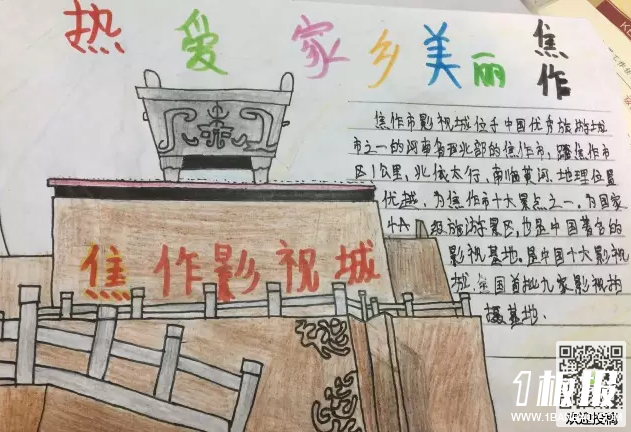 热爱家乡美丽焦作
焦作市影视城位于中国优秀旅游城
市之一的河南省西北部的焦作市,距焦作市
区1公里,北依太行,南临黄河,地理位置
优越,为焦作市十大景点之一,为国家
4A级旅游景区,也是中国著名的
影视基地,是中国十大影视
城,全国首批九家影视拍
摄基地.
焦作影视城
1板报
欢迎投稿